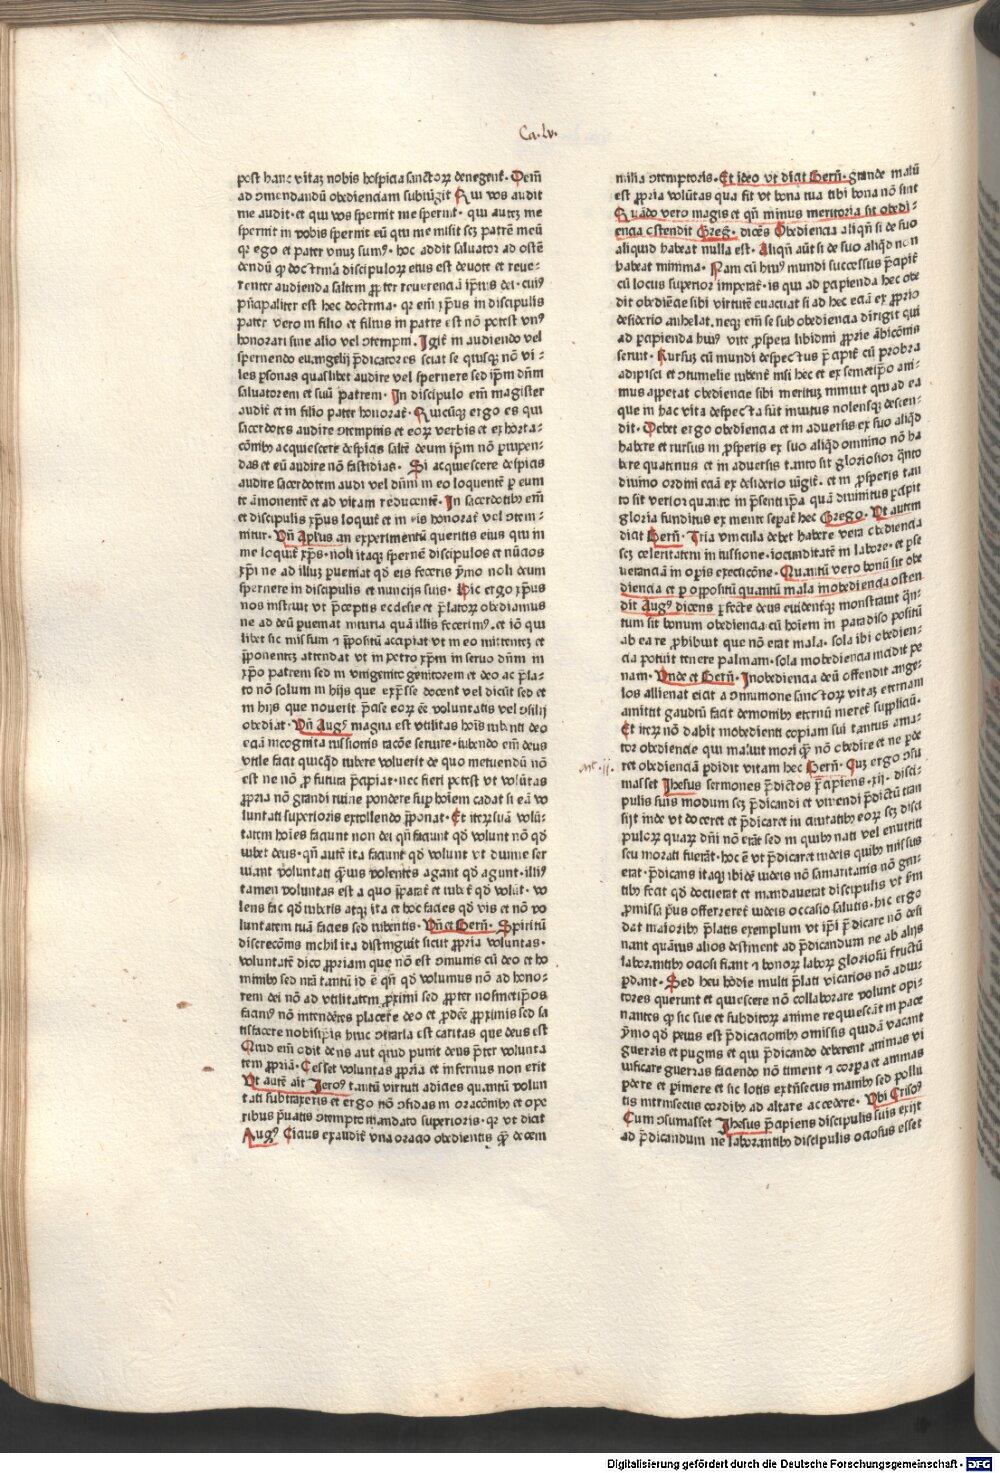 Ca. lv.
post hanc vitaȝ nobis hospicia sanctoꝝ denegent̃. Deīn
ad ɔmendandū obedienciam subiūgit Qui vos audit
me audit. et qui vos spernit me spernit. qui auteȝ me
spernit in vobis spernit eū qui me misit seȝ patrē meū
qꝛ ego et pater vnuȝ sumꝰ. hoc addit saluator ad ostē
dendū ꝙ doctrina discipuloꝝ eius est deuote et reue⸗
renter audienda saltem ꝓpter reuerenciā ip̄ius dei. cuiꝰ
pn̄cipaliter est hec doctrina. qꝛ em̄ xp̄us in discipulis
pater vero in filio et filius in patre est nō potest vnꝰ
honorari sine alio vel ɔtempni. Igit̃ in audiendo vel
spernendo euangelij p̄dicatores sciat se quisqȝ nō vi⸗
les ꝑsonas quaslibet audire vel spernere sed ip̄m dn̄m
saluatorem et suū patrem. In discipulo em̄ magister
audit̃ et in filio pater honorat̃. Quicūqȝ ergo es qui
sacerdotes audire ɔtempnis et eoꝝ verbis et exhorta⸗
cōnibȝ acquiescere despicis saltē deum ip̄m nō ꝑtipen⸗
das et eū audire nō fastidias. Si acquiescere despicis
audire sacerdotem audi vel dn̄m in eo loquentē ꝑ eum
te āmonentē et ad vitam reducentē. In sacerdotibȝ em̄
et discipulis xp̄us loquit̃ et in eis honorat̃ vel ɔtem⸗
nitur. Vn̄ Apl̄us an experimentū queritis eius qui in
me loquit̃ xp̄s. noli itaqȝ spernē discipulos et nūcios
xp̄i ne ad illuȝ ꝑueniat qd̄ eis feceris ymo noli deum
spernere in discipulis et nuncijs suis. Hic ergo xp̄us
nos instruit vt p̄ceptis ecclesie et p̄latoꝝ obediamus
ne ad deū ꝑueniat iniuria quā illis fecerimꝰ. et iō qui
libet sic missum ⁊ p̄positū accipiat vt in eo mittenteȝ et
p̄ponenteȝ attendat vt in petro xp̄m in seruo dn̄m in
xp̄o patrem sed in vnigenito genitorem et deo ac p̄la⸗
to nō solum in hijs que exp̄sse docent vel dicūt sed et
in hijs que nouerit p̄cise eoꝝ eē voluntatis vel ɔsilij
obediat. Vn̄ Augꝰ magna est vtilitas hoīs iubenti deo
eciā incognita iussionis racōe seruire. iubendo em̄ deus
vtile facit quicqd̄ iubere voluerit de quo metuendū nō
est ne nō ꝓfutura p̄cipiat. nec fieri potest vt volūtas
ꝓpria nō grandi ruine pondere suꝑ hoīem cadat si eā vo
luntati superioris extollendo p̄ponat. Et iteꝝ suā volū⸗
tatem hoīes faciunt non dei qn̄ faciunt qd̄ volunt nō qd̄
iubet deus. qn̄ autē ita faciunt qd̄ volunt vt diuine ser
uiant voluntati qm̄uis volentes agant qd̄ agunt. illiꝰ
tamen voluntas est a quo p̄parat̃ et iubet̃ qd̄ volūt. vo
lens fac qd̄ iuberis atqȝ ita et hoc facies qd̄ vis et nō vo
luntatem tuā facies sed iubentis. Vn̄ et Bern̄. Spiritū
discrecōnis nichil ita distinguit sicut ꝓpria voluntas.
voluntatē dico ꝓpriam que nō est ɔmunis cū deo et ho
minibȝ sed nr̄a tantū id ē qn̄ qd̄ volumus nō ad hono⸗
rem dei nō ad vtilitatem ꝓximi sed ꝓpter nosmetip̄os
facimꝰ nō intendētes placere deo et ꝓdeē ꝓximis sed sa
tisfacere nobisip̄is huic ɔtraria est caritas que deus est
Quid em̄ odit deus aut quid punit deus p̄ter volunta
tem ꝓpriā. Cesset voluntas ꝓpria et infernus non erit
Vt autē ait Jeroꝰ tantū virtuti adicies quantū volun
tati subtraxeris et ergo nō ɔfidas in oracōnibȝ et ope
ribus p̄uatis ɔtempto mandato superioris. qꝛ vt dicit
Augꝰ Cicius exaudit̃ vna oracio obedientis qm̄ decem
milia ɔtemptoris. Et ideo vt dicit Bern̄. grande malū
est ꝓpria volūtas qua fit vt bona tua tibi bona nō sint
Quādo vero magis et qn̄ minus meritoria sit obedi⸗
encia ostendit Greg̃. dicēs Obediencia aliqn̄ si de suo
aliquid habeat nulla est. Aliqn̄ aūt si de suo aliqd̄ non
habeat minima. Nam cū huiꝰ mundi successus p̄cipit̃
cū locus superior imperat̃. is qui ad ꝑcipienda hec obe
dit obediēcie sibi virtutē euacuat si ad hec eciā ex ꝓprio
desiderio anhelat. neqȝ em̄ se sub obediencia dirigit qui
ad ꝑcipienda huiꝰ vite ꝓspera libidini ꝓprie ābicōnis
seruit. Rursuȝ cū mundi despectus p̄cipit̃ cū probra
adipisci et ɔtumelie iubent̃ nisi hec et ex semetip̄o ani⸗
mus appetat obediencie sibi merituȝ minuit qui ad ea
que in hac vita despecta sūt inuitus nolensqȝ descen⸗
dit. Debet ergo obediencia et in aduersis ex suo aliqd̄
habere et rursus in ꝓsperis ex suo aliqd̄ omnino nō ha
bere quatinus et in aduersis tanto sit gloriosior qn̄to
diuino ordini eciā ex desiderio iūgit̃. et in ꝓsperis tan
to sit verior quanto in p̄senti ip̄a quā diuinitus ꝑcipit
gloria funditus ex mente separat̃ hec Grego. Vt autem
dicit Bern̄. Tria vincula debet habere vera obediencia
seȝ celeritatem in iussione. iocunditatē in labore. et ꝑse
uerancia in oꝑis execucōne. Quantū vero bonū sit obe
diencia et ꝑ oppositū quantū mala inobediencia osten
dit Augꝰ dicens ꝑfecte deus euidentqȝ monstrauit qn̄⸗
tum sit bonum obediencia cū hoīem in paradiso positū
ab ea re ꝓhibuit que nō erat mala. sola ibi obedien⸗
cia potuit tenere palmam. sola inobediencia incidit pe
nam. Vnde et Bern̄. Inobediencia deū offendit ange⸗
los allienat eicit a ɔmunione sanctoꝝ vitaȝ eternam
amittit gaudiū facit demonibȝ eternū meret̃ suppliciū.
Et iteꝝ nō dabit inobedienti copiam sui tantus ama⸗
tor obediencie qui maluit mori qm̄ nō obedire et ne ꝑde
ret obedienciā ꝑdidit vitam hec Bern̄. Cuȝ ergo ɔsu
Art. ij.
masset Jhesus sermones p̄dictos p̄cipiens. xij. disci⸗
pulis suis modum seȝ p̄dicandi et viuendi p̄dictū tran
sijt inde vt doceret et p̄dicaret in ciuitatibȝ eoꝝ seȝ disci
puloꝝ quaꝝ dn̄i nō erāt sed in quibȝ nati vel enutriti
seu morati fuerāt. hoc ē vt p̄dicaret iudeis quibȝ missus
erat. p̄dicans itaqȝ ibidē iudeis nō samaritanis nō gen⸗
tibȝ fecit qd̄ docuerat et mandauerat discipulis vt s̄m
ꝓmissa p̄us offerreret̃ iudeis occasio salutis. hic ergo
dat maioribȝ p̄latis exemplum vt ip̄i p̄dicare nō desi
nant quātus alios destinent ad p̄dicandum ne ab alijs
laborantibȝ ociosi fiant ⁊ bonoꝝ laboꝝ gloriosū fructū
ꝑdant. Sed heu hodie multi p̄lati vicarios nō adiu⸗
tores querunt et quiescere nō collaborare volunt opi⸗
nantes ꝙ sic sue et subditoꝝ anime requiescāt in pace
ymo qd̄ peius est p̄dicacionibȝ omissis quidā vacant
guerris et pugnis et qui p̄dicando deberent animas vi
uificare guerras faciendo nō timent ⁊ corpa et animas
ꝑdere et ꝑimere et sic lotis extrīsecus manibȝ sed pollu
tis intrinsecus cordibȝ ad altare accedere. Vbi Crisoꝰ
Cum ɔsumasset Jhesus p̄cipiens discipulis suis exijt
ad p̄dicandum ne laborantibȝ discipulis ociosus esset
Digitalisierung gefördert durch die Deutsche Forschungsgemeinschaft - DFG